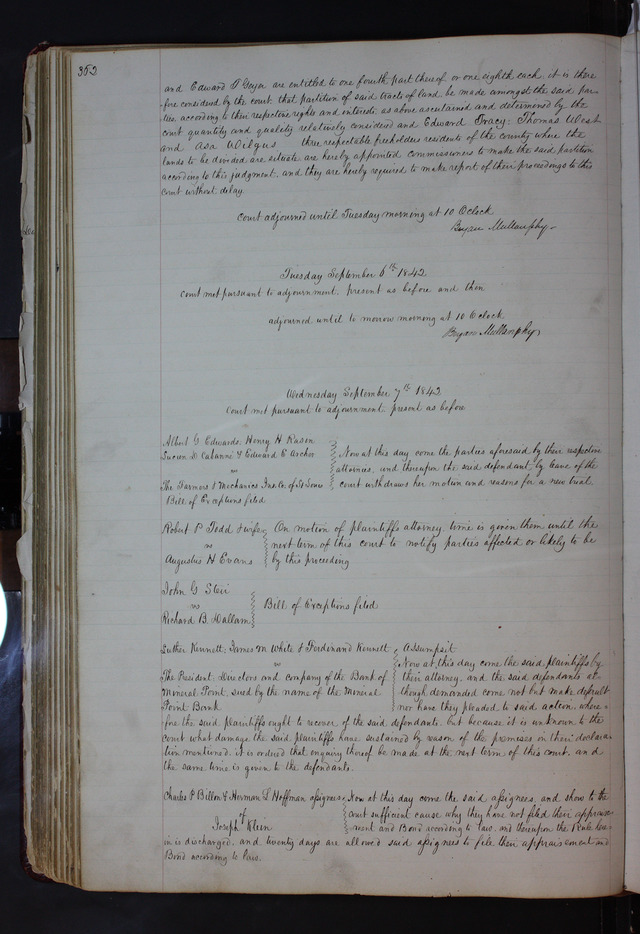 352
and Edward S Geyer are entitled to one fourth part thereof or one eighth each, it is there
fore considered by the court that partition of said tracts of land be made amongst the said par-
ties, according to their respective rights and interests as above ascertained and determined by the
court quantity and quality relatively considered and Edward Tracy, Thomas West
and Asa Wilgus three respectable freeholders residents of the county where the
lands to be divided are situate are hereby appointed commissioners to make the said partition
according to this judgment, and they are hereby required to make report of their proceedings to this
court without delay
Court adjourned until Tuesday morning at 10 O'clock
Bryan Mullanphy
Tuesday September 6th 1842
Court met pursuant to adjournment, present as before and then
adjourned until to morrow morning at 10 O'clock
Bryan Mullanphy
Wednesday September 7th 1842
Court met pursuant to adjournment, present as before
Albert G Edwards, Henry H
Lucien D Cabanné & Edward C Archer
vs
The Farmers & Mechanics Ins. Co. of St Louis
Bill of Exceptions filed
Now at this day come the parties aforesaid by their respective
attornies, and thereupon the said defendant by leave of the
court withdraws her motion and reasons for a new trial
Robert P Todd & wife
vs
Augustus H Evans
On motion of plaintiffs attorney time is given them until the
next term of this court to notify parties affected or likely to be
by this proceeding
John G
vs
Richard B. Hallam
Bill of Exceptions filed
Luther Kennett, James M White & Ferdinand Kennett
vs
The President, Directors and company of the Bank of
Mineral Point, sued by the name of the Mineral
Point Bank
Assumpsit
Now at this day come the said plaintiffs by
their attorney, and the said defendants al-
though demanded come not but make default
nor have they pleaded to said action, where-
fore the said plaintiffs ought to recover of the said defendants, but because it is unknown to the
court what damage the said plaintiffs have sustained by reason of the premises in their declara-
tion mentioned, it is ordered that enquiry thereof be made at the next term of this court, and
the same time is given to the defendants.
Charles P Billon & Herman L Hoffman assignees
of
Joseph Klein
Now at this day come the said assignees, and show to the
court sufficient cause why they have not filed their appraise-
ment and Bond according to law, and thereupon the Rule here-
in is discharged, and twenty days are allowed said assignees to file their appraisement and
Bond according to law.